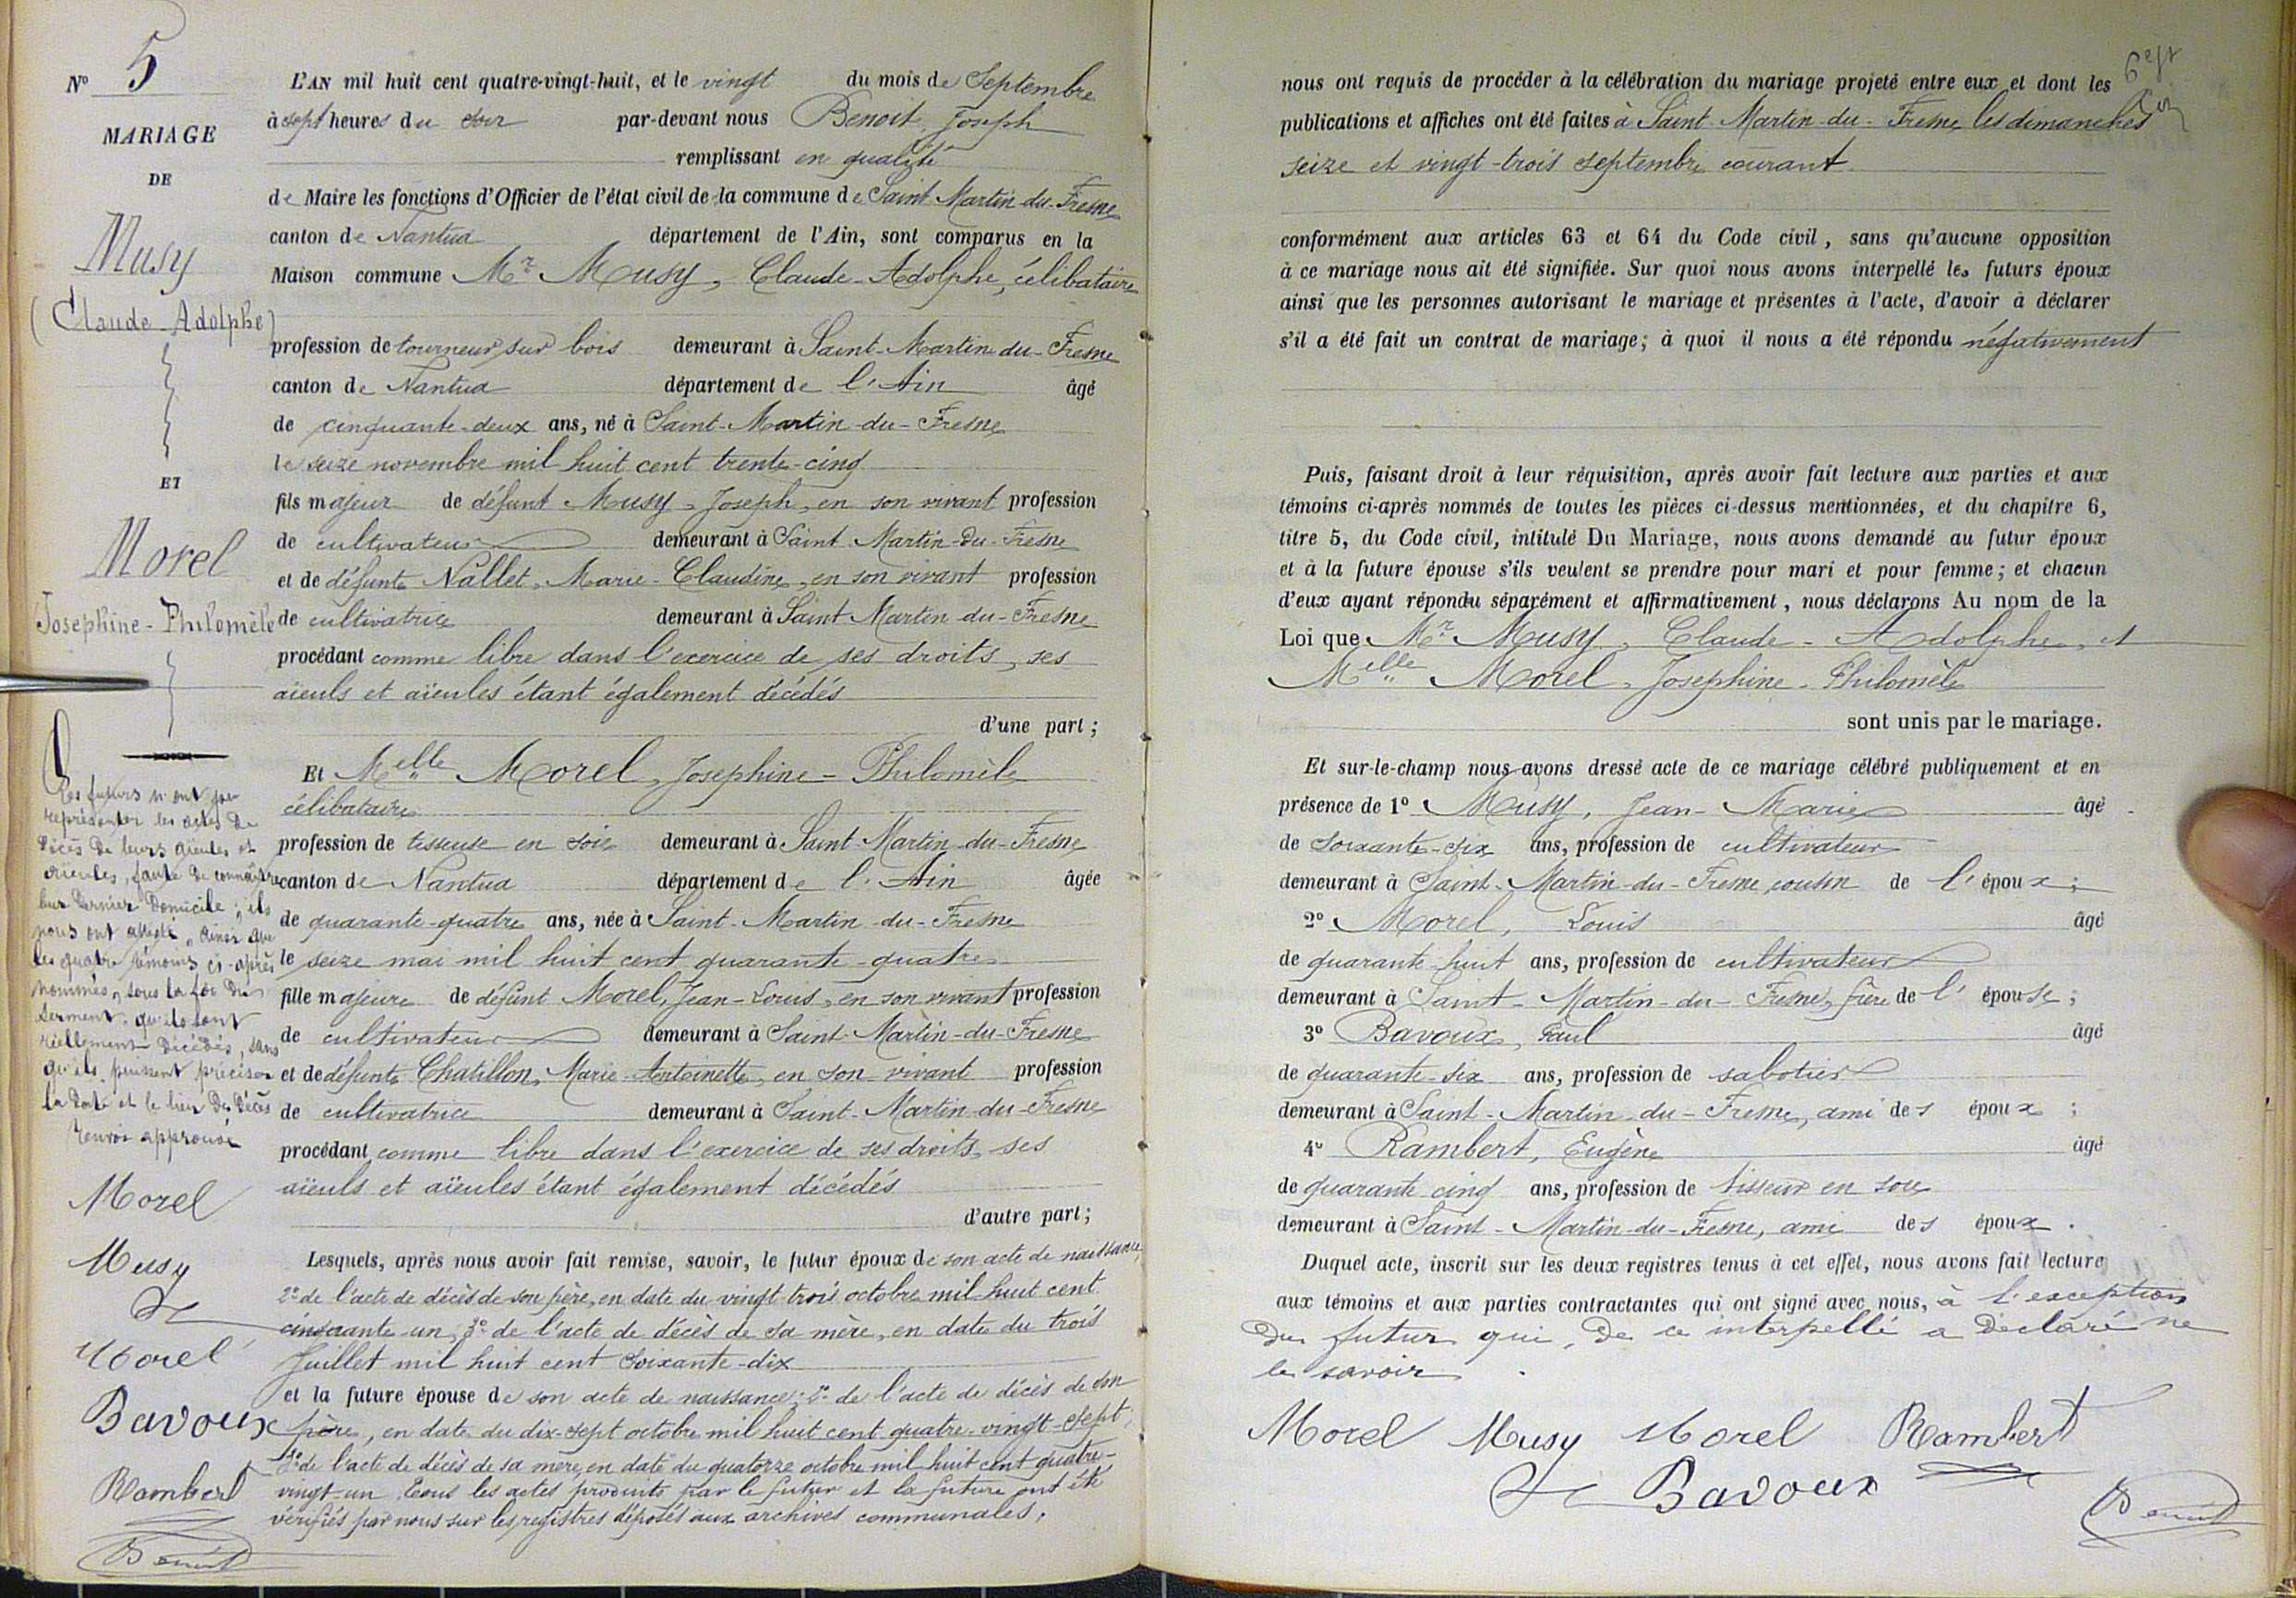 Nº 5
MARIAGE
DE
Musy
(Claude-Adolphe)
ET
Morel
Josephine-Philomèle
Les futurs n'ont pu
représenter les actes de
décès de leurs aïeuls et
aïeules, faute de connaître
leur dernier domicile; ils
nous ont attesté, ainsi que
les quatre témoins ci-après
nommés, sous la foi du
serment qu'ils sont
réellement décédés, sans
qu'ils puissent préciser
la date et le lieu du décès
Renvoi approuvé
Morel
Musy
Morel
Bavoux
Rambert
Benoit
L'AN mil huit cent quatre-vingt-huit, et le vingt du mois de Septembre
à sept heures du soir par-devant nous Benoit, Joseph
remplissant en qualité
de Maire les fonctions d'Officier de l'état civil de la commune de Saint-Martin-du-Fresne
canton de Nantua département de l'Ain, sont comparus en la
Maison commune Mr Musy, Claude-Adolphe, célibataire
profession de tourneur sur bois demeurant à Saint-Martin-du-Fresne
canton de Nantua département de l'Ain âgé
de cinquante-deux ans, né à Saint-Martin-du-Fresne
le seize novembre mil huit cent trente-cinq
fils majeur de défunt Musy, Joseph, en son vivant profession
de cultivateur demeurant à Saint-Martin-du-Fresne
et de défunte Nallet, Marie-Claudine, en son vivant profession
de cultivatrice demeurant à Saint-Martin-du-Fresne
procédant comme libre dans l'exercice de ses droits, ses
aïeuls et aïeules étant également décédés
d'une part;
Et Melle Morel, Josephine-Philomèle
célibataire
profession de tisseuse en soie demeurant à Saint-Martin-du-Fresne
canton de Nantua département de l'Ain âgée
de quarante-quatre ans, née à Saint-Martin-du-Fresne
le seize mai mil huit cent quarante-quatre
fille majeure de défunt Morel, Jean-Louis, en son vivant profession
de cultivateur demeurant à Saint-Martin-du-Fresne
et de défunte Chatillon, Marie-Antoinette, en son vivant profession
de cultivatrice demeurant à Saint-Martin-du-Fresne
procédant comme libre dans l'exercice de ses droits, ses
aïeuls et aïeules étant également décédés
d'autre part;
Lesquels, après nous avoir fait remise, savoir, le futur époux de son acte de naissance,
2º de l'acte de décès de son père, en date du vingt-trois octobre mil huit cent
cinquante-un, 3º de l'acte de décès de sa mère, en date du trois
Juillet mil huit cent soixante-dix
et la future épouse de son acte de naissance; 2º de l'acte de décès de son
père, en date du dix-sept octobre mil huit cent quatre-vingt-sept,
3º de l'acte de décès de sa mère, en date du quatorze octobre mil huit cent quatre-
vingt-un. Tous les actes produits par le futur et la future ont été
vérifiés par nous sur les registres déposés aux archives communales.
nous ont requis de procéder à la célébration du mariage projeté entre eux et dont les
publications et affiches ont été faites à Saint-Martin-du-Fresne, les dimanches
seize et vingt-trois septembre courant
conformément aux articles 63 et 64 du Code civil, sans qu'aucune opposition
à ce mariage nous ait été signifiée. Sur quoi nous avons interpellé les futurs époux
ainsi que les personnes autorisant le mariage et présentes à l'acte, d'avoir à déclarer
s'il a été fait un contrat de mariage; à quoi il nous a été répondu négativement
Puis, faisant droit à leur réquisition, après avoir fait lecture aux parties et aux
témoins ci-après nommés de toutes les pièces ci-dessus mentionnées, et du chapitre 6,
titre 5, du Code civil, intitulé Du Mariage, nous avons demandé au futur époux
et à la future épouse s'ils veulent se prendre pour mari et pour femme; et chacun
d'eux ayant répondu séparément et affirmativement, nous déclarons Au nom de la
Loi que Mr Musy, Claude-Adolphe, et
Melle Morel, Josephine-Philomèle
sont unis par le mariage.
Et sur-le-champ nous avons dressé acte de ce mariage célébré publiquement et en
présence de 1º Musy, Jean-Marie âgé
de soixante-six ans, profession de cultivateur
demeurant à Saint-Martin-du-Fresne, cousin de l'époux;
2º Morel, Louis âgé
de quarante-huit ans, profession de cultivateur
demeurant à Saint-Martin-du-Fresne, frère de l'épouse;
3º Bavoux, Paul âgé
de quarante-six ans, profession de sabotier
demeurant à Saint-Martin-du-Fresne, ami des époux;
4º Rambert, Eugène âgé
de quarante cinq ans, profession de tisseur en soie
demeurant à Saint-Martin-du-Fresne, ami des époux.
Duquel acte, inscrit sur les deux registres tenus à cet effet, nous avons fait lecture
aux témoins et aux parties contractantes qui ont signé avec nous, à l'exception
du futur qui, de ce interpellé a déclaré ne
le savoir.
Morel Musy Morel Rambert
Bavoux
Benoit